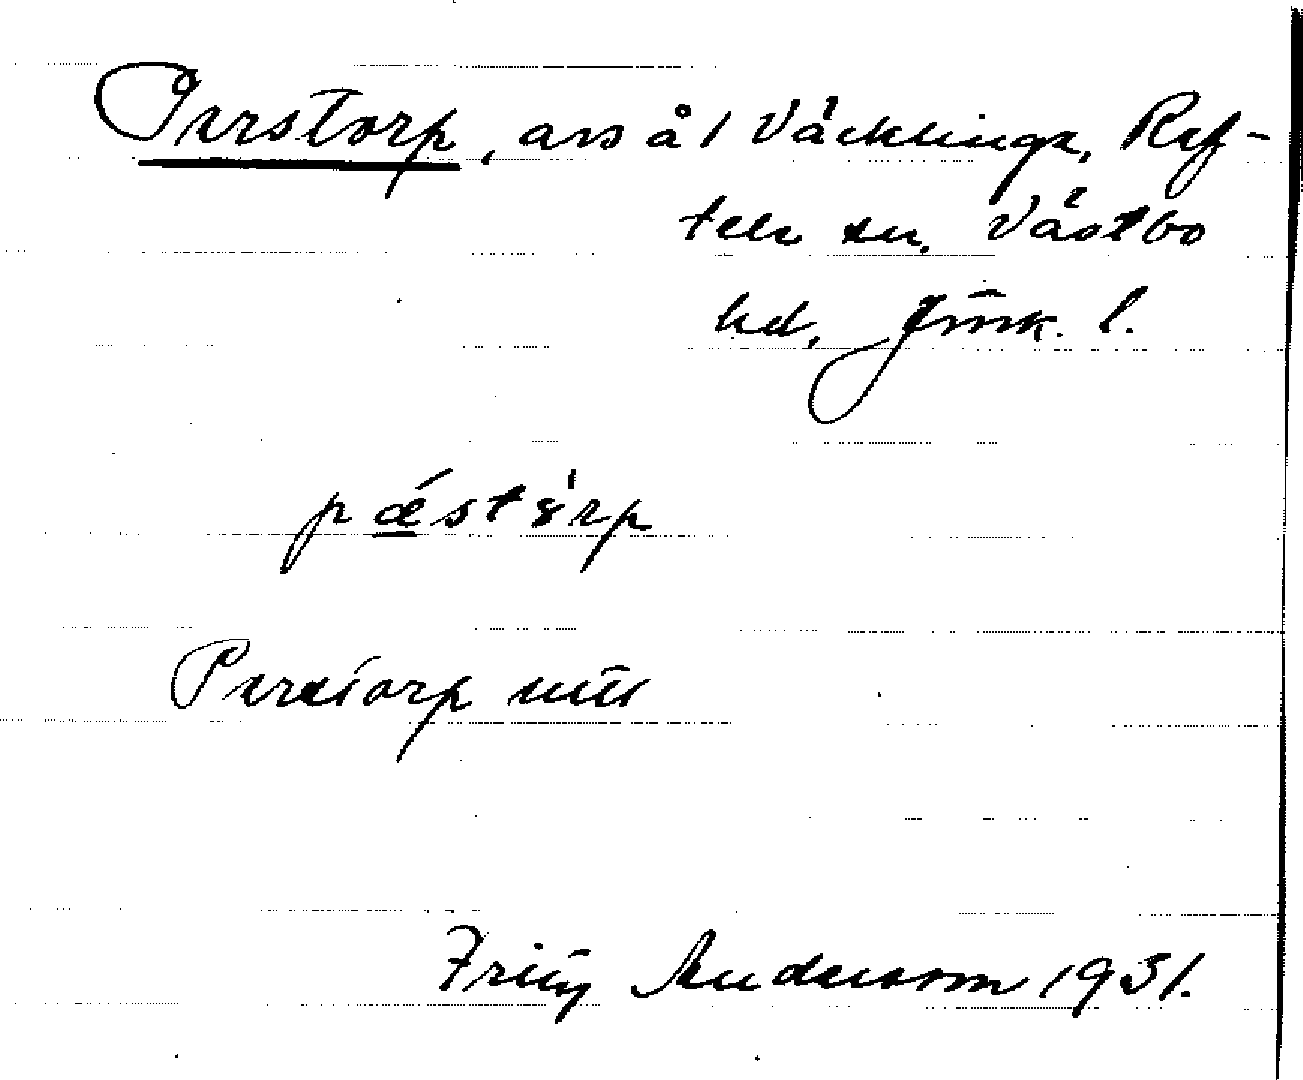 Perstorp, avs å 1 Väcklinge, Ref-
tele sn. Västbo
hd, Jönk. l.
pǽstòrp
Perstorp
Anderson 1931.